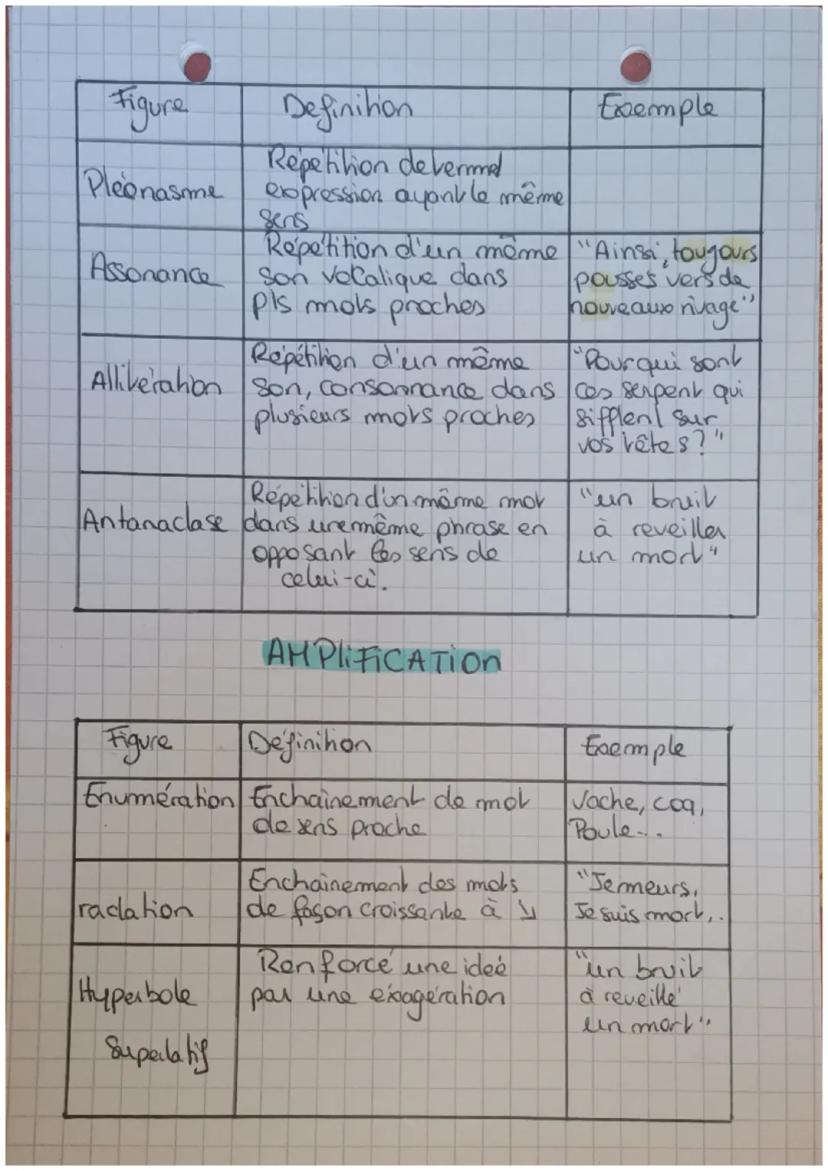 Figure Definition Exemple
Pléonasme
Répétition de terme/
expression ayant le même
sens
Assonance
Répétition d'un même
son vocalique dans
pls mots proches
"Ainsi, toujours
pousses vers de
nouveaux rivage"
Allitération
Répétition d'un même
son, consonnance dans
plusieurs mots proches
"Pour qui sont
ces serpent qui
sifflent sur
vos têtes?"
Antanaclase
Répétition d'un même mot
dans une même phrase en
opposant les sens de
celui-ci.
"un bruit
à reveiller
un mort"
AMPLIFICATION
Figure Définition Exemple
Enumération
Enchainement de mot
de sens proche
Vache, coq,
Poule...
radation
Enchainement des mots
de façon croissante à ↘
"Je meurs,
Je suis mort,..
Hyperbole
Superlatif
Renforce une ideé
par une exagération
"un bruit
à reveille
un mort"